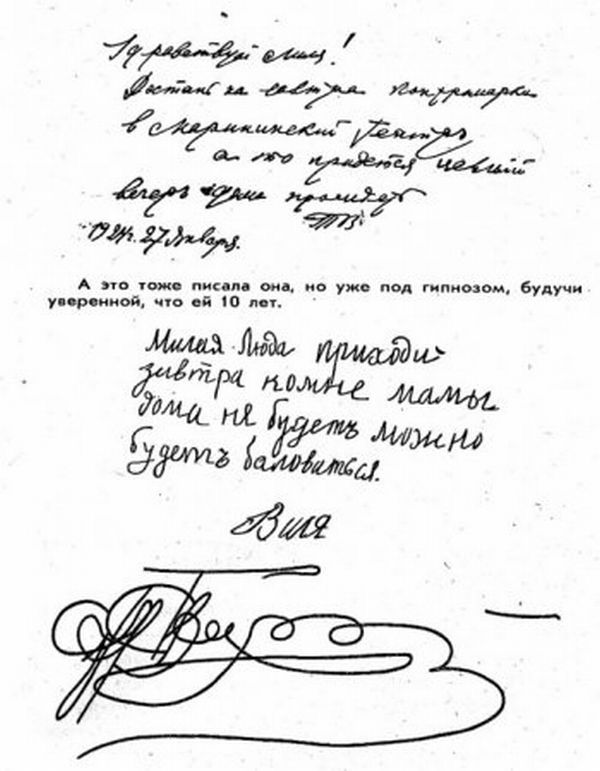 Здравствуй Миля!
Достань на завтра контрмарки
в Мариинский Театръ,
а то придется целый
вечеръ дома просидеть
ТВ.
1924г. 27 Января.
А это тоже писала она, но уже под гипнозом, будучи
уверенной, что ей 10 лет.
Милая Люда приходи
завтра комне мамы
дома не будетъ можно
будетъ баловаться.
Виля